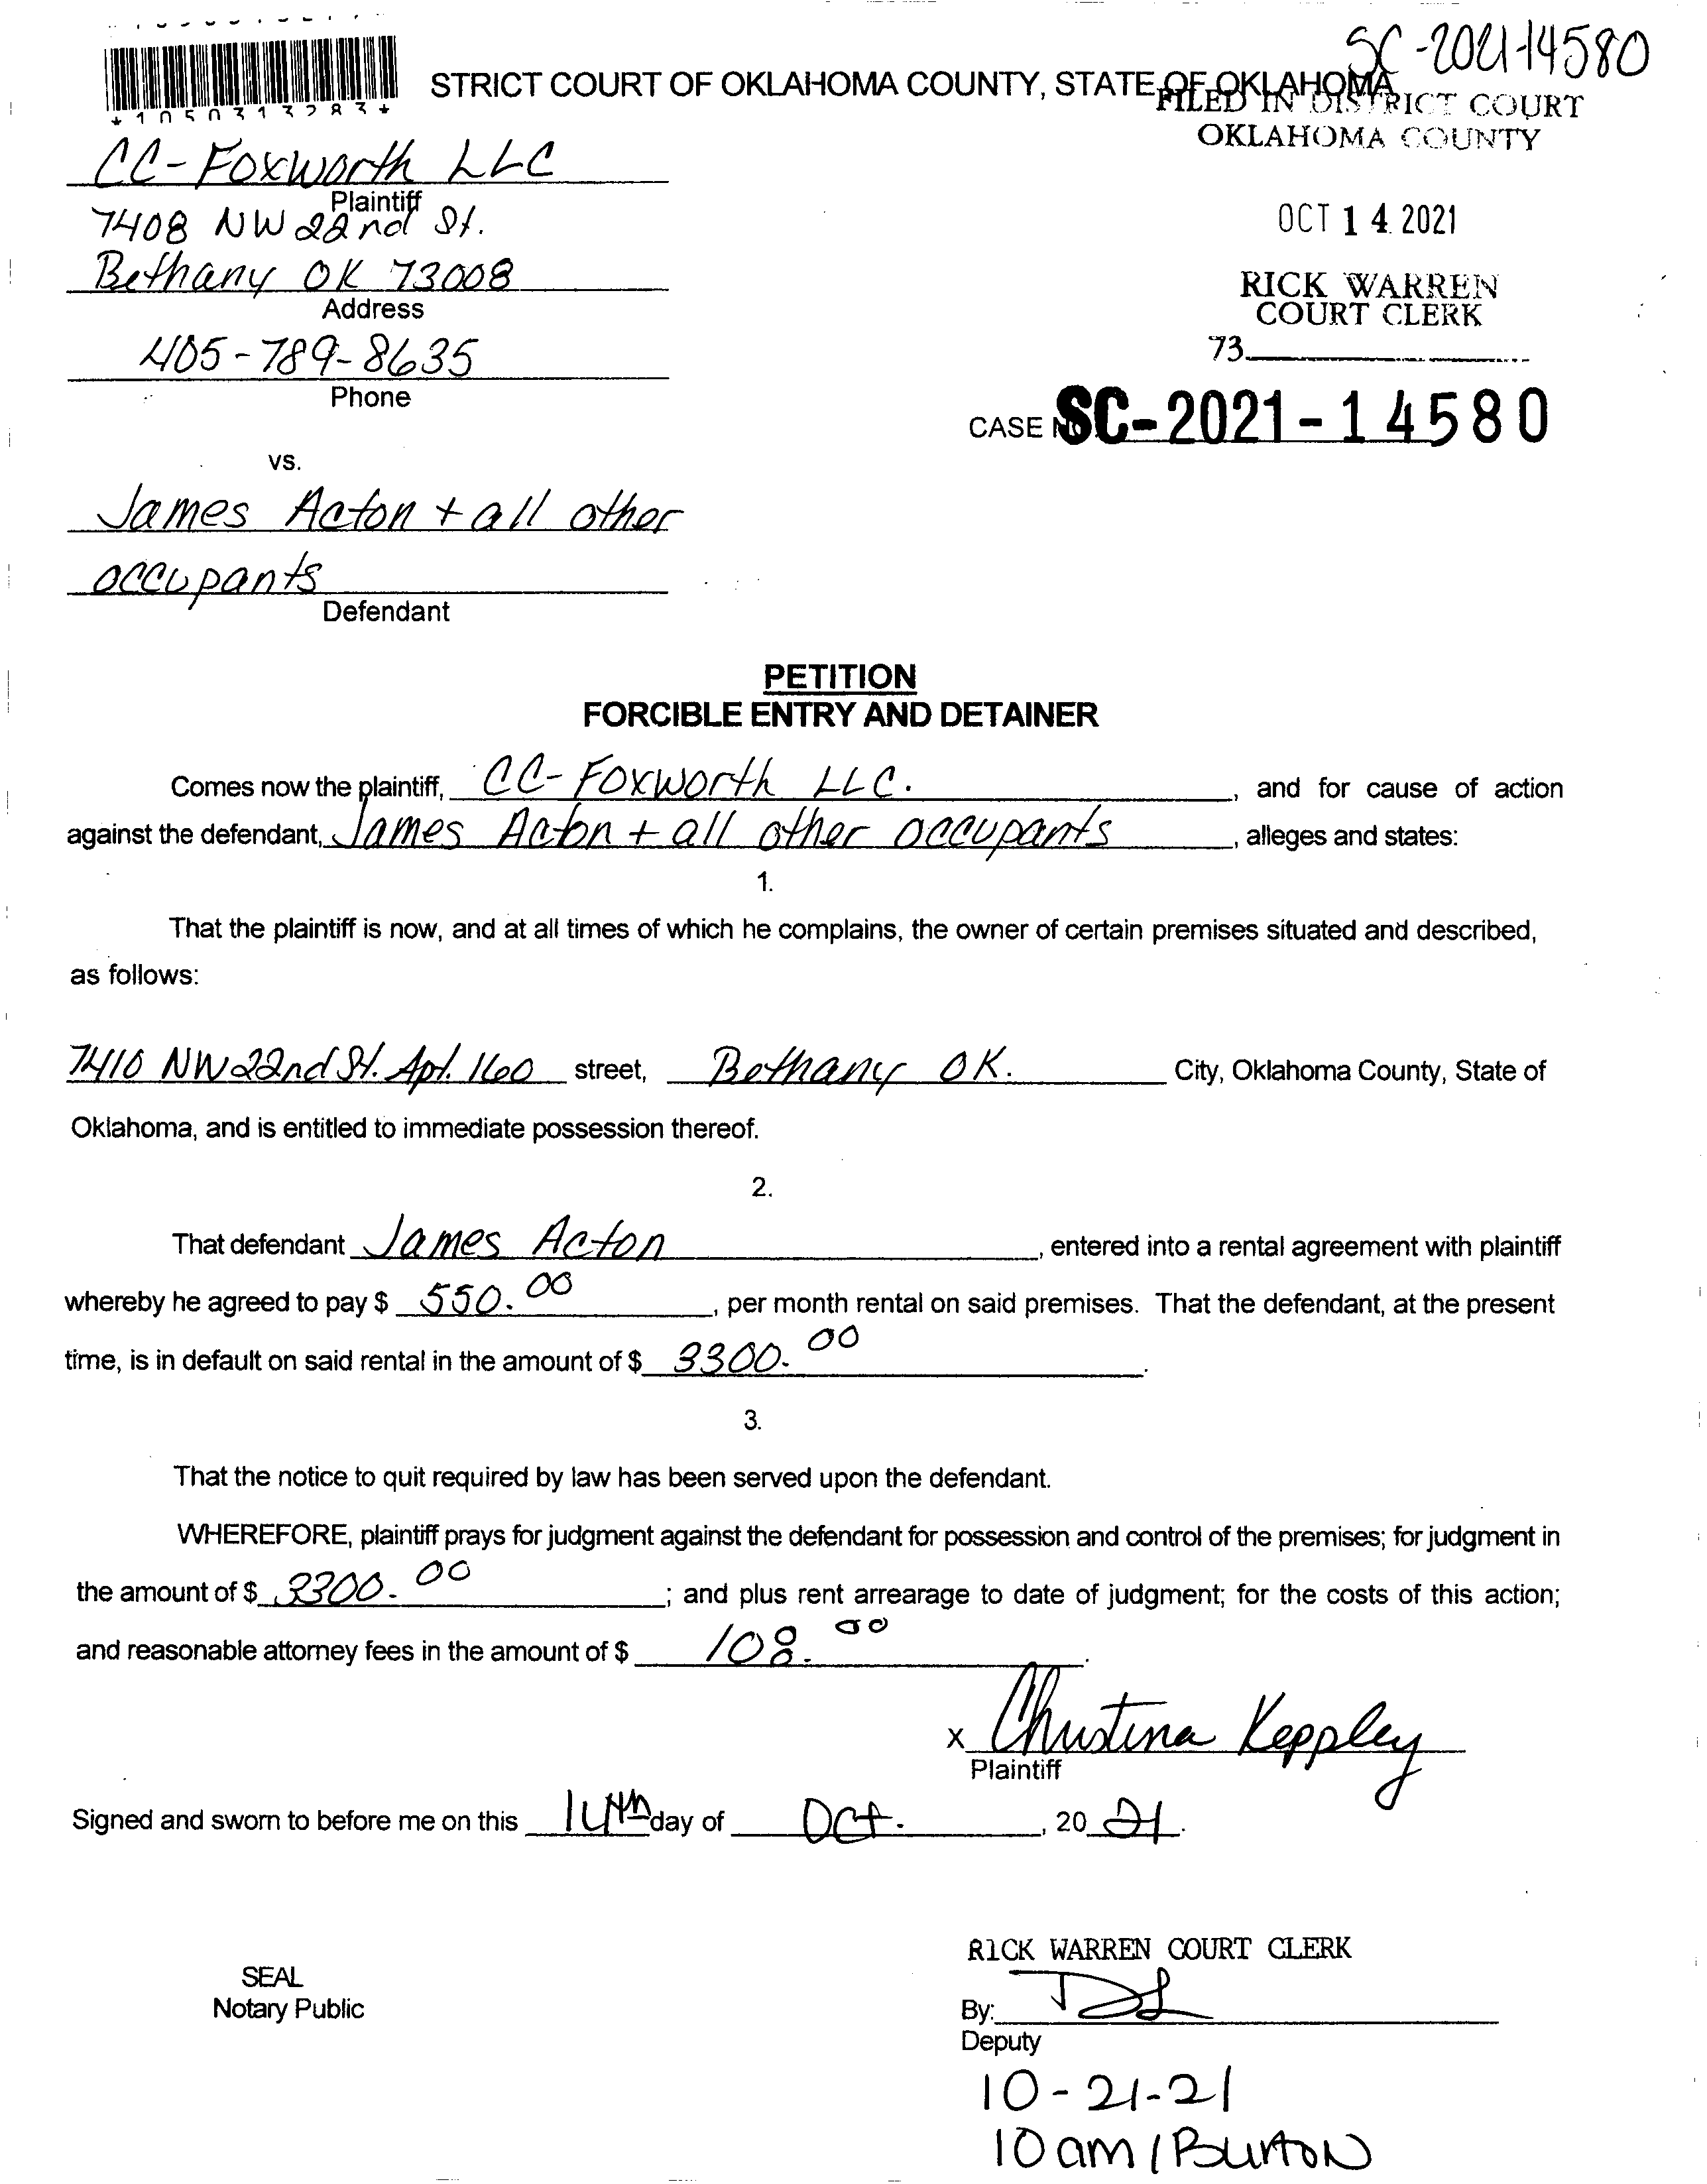 SC-2021-14580
STRICT COURT OF OKLAHOMA COUNTY, STATE OF OKLAHOMA
*1050313283*
FILED IN DISTRICT COURT
OKLAHOMA COUNTY
CC-Foxworth LLC
Plaintiff
7408 NW 22nd St.
OCT 14 2021
Bethany OK 73008
Address
RICK WARREN
COURT CLERK
405-789-8635
73
Phone
CASE NO. SC-2021-14580
vs.
James Acton + all other
occupants
Defendant
PETITION
FORCIBLE ENTRY AND DETAINER
Comes now the plaintiff, CC-Foxworth LLC. , and for cause of action
against the defendant, James Acton + all other occupants , alleges and states:
1.
That the plaintiff is now, and at all times of which he complains, the owner of certain premises situated and described,
as follows:
7410 NW 22nd St. Apt. 160 street, Bethany OK. City, Oklahoma County, State of
Oklahoma, and is entitled to immediate possession thereof.
2.
That defendant James Acton , entered into a rental agreement with plaintiff
whereby he agreed to pay $ 550.00 , per month rental on said premises. That the defendant, at the present
time, is in default on said rental in the amount of $ 3300.00 .
3.
That the notice to quit required by law has been served upon the defendant.
WHEREFORE, plaintiff prays for judgment against the defendant for possession and control of the premises; for judgment in
the amount of $ 3300.00 ; and plus rent arrearage to date of judgment; for the costs of this action;
and reasonable attorney fees in the amount of $ 108.00 .
x Christina Keppley
Plaintiff
Signed and sworn to before me on this 14th day of Oct. , 20 21 .
RICK WARREN COURT CLERK
SEAL
Notary Public
By:
Deputy
10-21-21
10 am / Burton